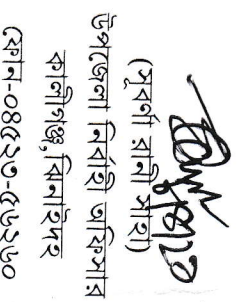 (সুবর্ণা রানি সাহা)
উপজেলা নির্বাহী অফিসার
কালীগঞ্জ, ঝিনাইদহ
ফোন-০৪৫২৩-৫৬১৬০